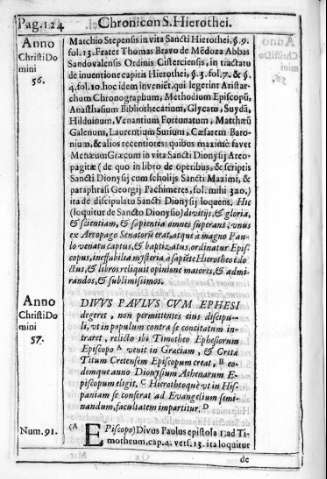 Pag. 124 Chronicon S. Hierothei.
Anno
Christi Do
mini
56.
Matchio Stepensis in vita Sancti Hierothei. §. 9.
fol. 13. Frater Thomas Bravo de Mēdoza Abbas
Sandovalensis Ordinis Cisterciensis, in tractatu
de inventione capitis Hierothei, §. 5. fol. 7. & §.
4. fol. 10. hoc idem inveniet, qui legerint Anistar-
chum Chronographum, Methodium Episcopū,
Anasthasium Bibliothecarium, Glycam, Suydā,
Hilduinum, Venantium Fortunatum, Matthæū
Galenum, Laurentium Surium, Cæsarem Baro-
nium, & alios recentiores: quibus maximè favet
Metaphr Græcum in vita Sancti Dionysij Areo-
pagitæ (de quo in libro de operibus, & scriptis
Sancti Dionysij cum scholijs Sancti Maximi, &
paraphrasi Georgij Pachimeres, fol. mihi 320.)
ita de discipulato Sancti Dionysij loquens. Hic
(loquitur de Sancto Dionysio) divitijs, & gloria,
& scientiam, & sapientia omnes superans, vnus
ex Areopago Senatorie erat, atque à magno Pau-
lo venatu captus, & baptizatus, ordinatur Epis-
copus, ineffabilia mysteria à sapiēte Hierotheo edo
ctus, & libros reliquit opinione maiores, & admi-
randos, & sublimissimos.
Anno
Christi Do
mini
57.
DIVUS PAVLVS CVM EPHESI
degeret, non permittentes eius discipu-
li, vt in populum contra se concitatum in-
traret, relicto ibi Timotheo Ephesiorum
Episcopo A venit in Graciam, & Crita
Titum Cretensem Episcopum creat, B eo
demque anno Dionysium Athenarum E-
piscopum elegit. C Hierotheo què vt in His-
paniam se conferat ad Evangelium semi-
nandum, facultatem impartitur. D
Num. 91.
(A Episcopo) Divus Paulus epistola 1. ad Ti-
motheum. cap. 4. vers. 13. ita loquitur
de